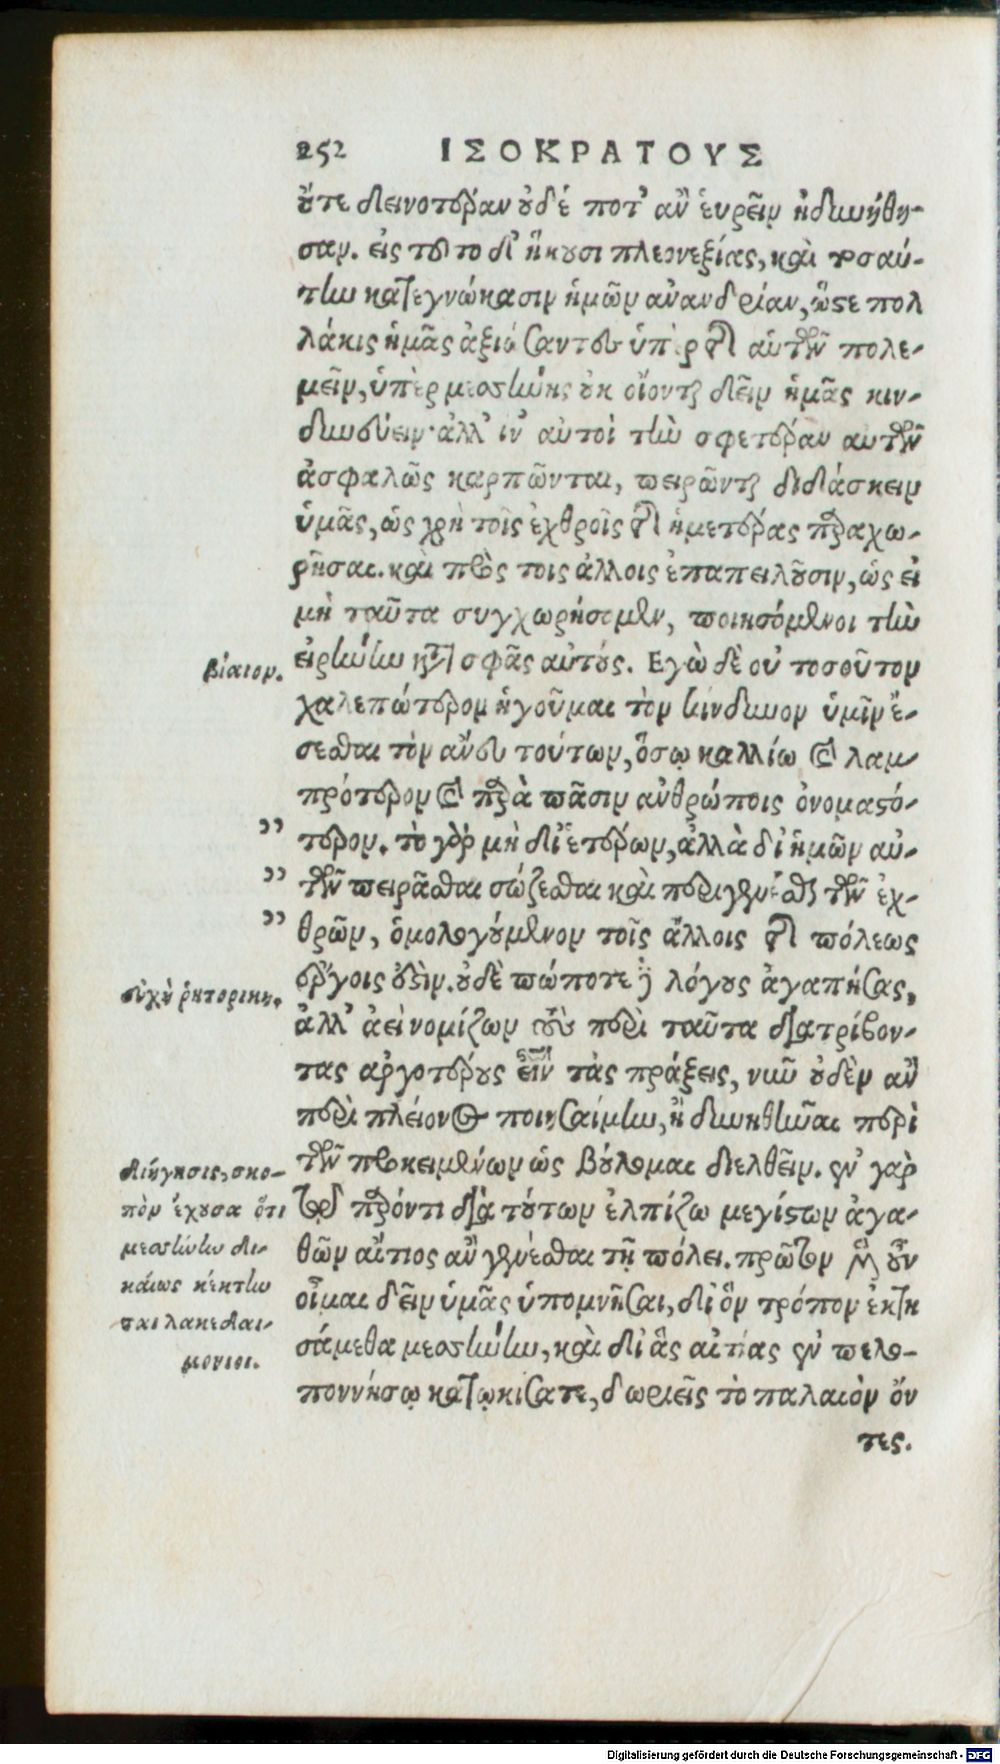 252 ΙΣΟΚΡΑΤΟΥΣ
οὔτε δεινοτέραν οὐδέ ποτ' ἂν εὑρεῖν ἠδυνήθη-
σαν. εἰς τοῦτο δ' ἥκουσι πλεονεξίας, καὶ τοσαύ-
την κατεγνώκασιν ἡμῶν ἀνανδρίαν, ὥστε πολ
λάκις ἡμᾶς ἀξιώσαντες ὑπὲρ τῆς αὑτῶν πολε-
μεῖν, ὑπὲρ μεσήνης οὐκ οἴονται δεῖν ἡμᾶς κιν-
δυνεύειν· ἀλλ' ἵν' αὐτοὶ τὴν σφετέραν αυτῶν
ἀσφαλῶς καρπῶνται, πειρῶνται διδάσκειν
ὑμᾶς, ὡς χρὴ τοῖς ἐχθροῖς τῆς ἡμετέρας παραχω-
ρῆσαι. καὶ πρὸς τοις ἄλλοις ἐπαπειλοῦσιν, ὡς εἰ
μὴ ταῦτα συγχωρήσομεν, ποιησόμενοι τὴν
βίαιον.
εἰρήνην κατὰ σφᾶς αὐτούς. Εγὼ δὲ οὐ τοσοῦτον
χαλεπώτερον ἡγοῦμαι τὸν κίνδυνον ὑμῖν ἔ-
σεσθαι τὸν ἄνευ τούτων, ὅσῳ καλλίω καὶ λαμ-
πρότερον καὶ παρὰ πᾶσιν ἀνθρώποις ὀνομαστό-
" τερον. τὸ γὰρ μὴ δι' ἑτέρων, ἀλλὰ δι' ἡμῶν αὐ-
" τῶν πειρᾶσθαι σώζεσθαι καὶ περιγενέσθαι τῶν ἐχ-
" θρῶν, ὁμολογούμενον τοῖς ἄλλοις τῆς πόλεως
εὐχὴ ῥητορικη.
ἔργοις ἐστὶν. οὐδὲ πώποτε δὲ λόγους ἀγαπήσας,
ἀλλ' ἀεὶ νομίζων τοὺς περὶ ταῦτα διατρίβον-
τας ἀργοτέρους εἶναι τὰς πράξεις, νῦν οὐδὲν ἂν
περὶ πλείονος ποιησαίμην, ἢ δυνηθῆναι περὶ
διήγησις, σκο-
πὸν ἔχουσα ὅτι
μεσήνην δι-
καίως κέκτην
ται λακεδαι-
μονιοι.
τῶν προκειμένων ὡς βούλομαι διελθεῖν. ἐν γὰρ
τῷ παρόντι διὰ τούτων ἐλπίζω μεγίστων ἀγα-
θῶν αἴτιος ἂν γενέσθαι τῇ πόλει. πρῶτον μὲν οὖν
οἶμαι δεῖν ὑμᾶς ὑπομνῆσαι, δι' ὃν τρόπον ἐκτη
σάμεθα μεσήνην, καὶ δι' ἃς αἰτίας ἐν πελο-
ποννήσῳ κατῳκίσατε, δωριεῖς τὸ παλαιὸν ὄν
τες.
Digitalisierung gefördert durch die Deutsche Forschungsgemeinschaft - DFG